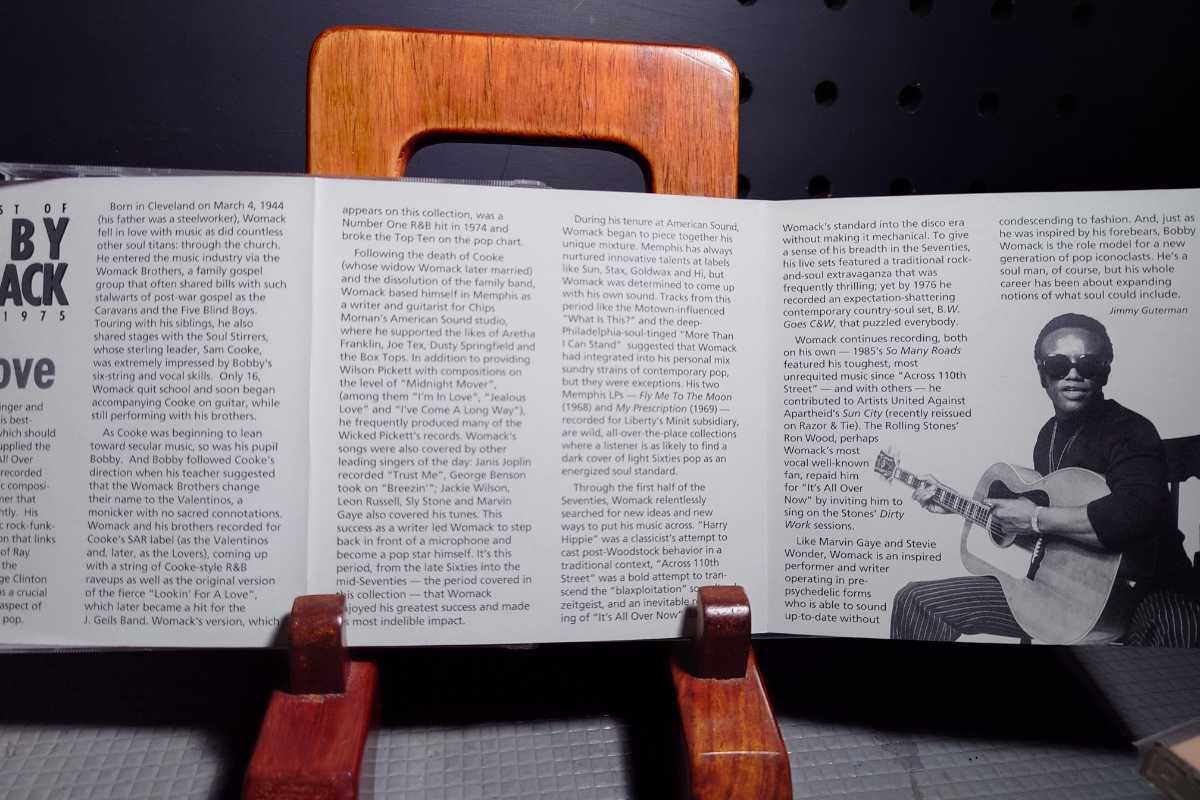 ST OF
BY
ACK
1975
ove
inger and
is best-
which should
upplied the
All Over
recorded
c composi-
ner that
ntly. His
c rock-funk-
on that links
of Ray
the
ge Clinton
s a crucial
aspect of
pop.
Born in Cleveland on March 4, 1944
(his father was a steelworker), Womack
fell in love with music as did countless
other soul titans: through the church.
He entered the music industry via the
Womack Brothers, a family gospel
group that often shared bills with such
stalwarts of post-war gospel as the
Caravans and the Five Blind Boys.
Touring with his siblings, he also
shared stages with the Soul Stirrers,
whose sterling leader, Sam Cooke,
was extremely impressed by Bobby's
six-string and vocal skills. Only 16,
Womack quit school and soon began
accompanying Cooke on guitar, while
still performing with his brothers.
As Cooke was beginning to lean
toward secular music, so was his pupil
Bobby. And Bobby followed Cooke's
direction when his teacher suggested
that the Womack Brothers change
their name to the Valentinos, a
monicker with no sacred connotations.
Womack and his brothers recorded for
Cooke's SAR label (as the Valentinos
and, later, as the Lovers), coming up
with a string of Cooke-style R&B
raveups as well as the original version
of the fierce "Lookin' For A Love",
which later became a hit for the
J. Geils Band. Womack's version, which
appears on this collection, was a
Number One R&B hit in 1974 and
broke the Top Ten on the pop chart.
Following the death of Cooke
(whose widow Womack later married)
and the dissolution of the family band,
Womack based himself in Memphis as
a writer and guitarist for Chips
Moman's American Sound studio,
where he supported the likes of Aretha
Franklin, Joe Tex, Dusty Springfield and
the Box Tops. In addition to providing
Wilson Pickett with compositions on
the level of "Midnight Mover",
(among them "I'm In Love", "Jealous
Love" and "I've Come A Long Way"),
he frequently produced many of the
Wicked Pickett's records. Womack's
songs were also covered by other
leading singers of the day: Janis Joplin
recorded "Trust Me", George Benson
took on "Breezin'"; Jackie Wilson,
Leon Russell, Sly Stone and Marvin
Gaye also covered his tunes. This
success as a writer led Womack to step
back in front of a microphone and
become a pop star himself. It's this
period, from the late Sixties into the
mid-Seventies — the period covered in
this collection — that Womack
joyed his greatest success and made
s most indelible impact.
During his tenure at American Sound,
Womack began to piece together his
unique mixture. Memphis has always
nurtured innovative talents at labels
like Sun, Stax, Goldwax and Hi, but
Womack was determined to come up
with his own sound. Tracks from this
period like the Motown-influenced
"What Is This?" and the deep-
Philadelphia-soul-tinged "More Than
I Can Stand" suggested that Womack
had integrated into his personal mix
sundry strains of contemporary pop,
but they were exceptions. His two
Memphis LPs — Fly Me To The Moon
(1968) and My Prescription (1969) —
recorded for Liberty's Minit subsidiary,
are wild, all-over-the-place collections
where a listener is as likely to find a
dark cover of light Sixties pop as an
energized soul standard.
Through the first half of the
Seventies, Womack relentlessly
searched for new ideas and new
ways to put his music across. "Harry
Hippie" was a classicist's attempt to
cast post-Woodstock behavior in a
traditional context, "Across 110th
Street" was a bold attempt to tran-
scend the "blaxploitation"
zeitgeist, and an inevitable
ing of "It's All Over Now"
Womack's standard into the disco era
without making it mechanical. To give
a sense of his breadth in the Seventies,
his live sets featured a traditional rock-
and-soul extravaganza that was
frequently thrilling; yet by 1976 he
recorded an expectation-shattering
contemporary country-soul set, B.W.
Goes C&W, that puzzled everybody.
Womack continues recording, both
on his own — 1985's So Many Roads
featured his toughest, most
unrequited music since "Across 110th
Street" — and with others — he
contributed to Artists United Against
Apartheid's Sun City (recently reissued
on Razor & Tie). The Rolling Stones'
Ron Wood, perhaps
Womack's most
vocal well-known
fan, repaid him
for "It's All Over
Now" by inviting him to
sing on the Stones' Dirty
Work sessions.
Like Marvin Gaye and Stevie
Wonder, Womack is an inspired
performer and writer
operating in pre-
psychedelic forms
who is able to sound
up-to-date without
condescending to fashion. And, just as
he was inspired by his forebears, Bobby
Womack is the role model for a new
generation of pop iconoclasts. He's a
soul man, of course, but his whole
career has been about expanding
notions of what soul could include.
Jimmy Guterman